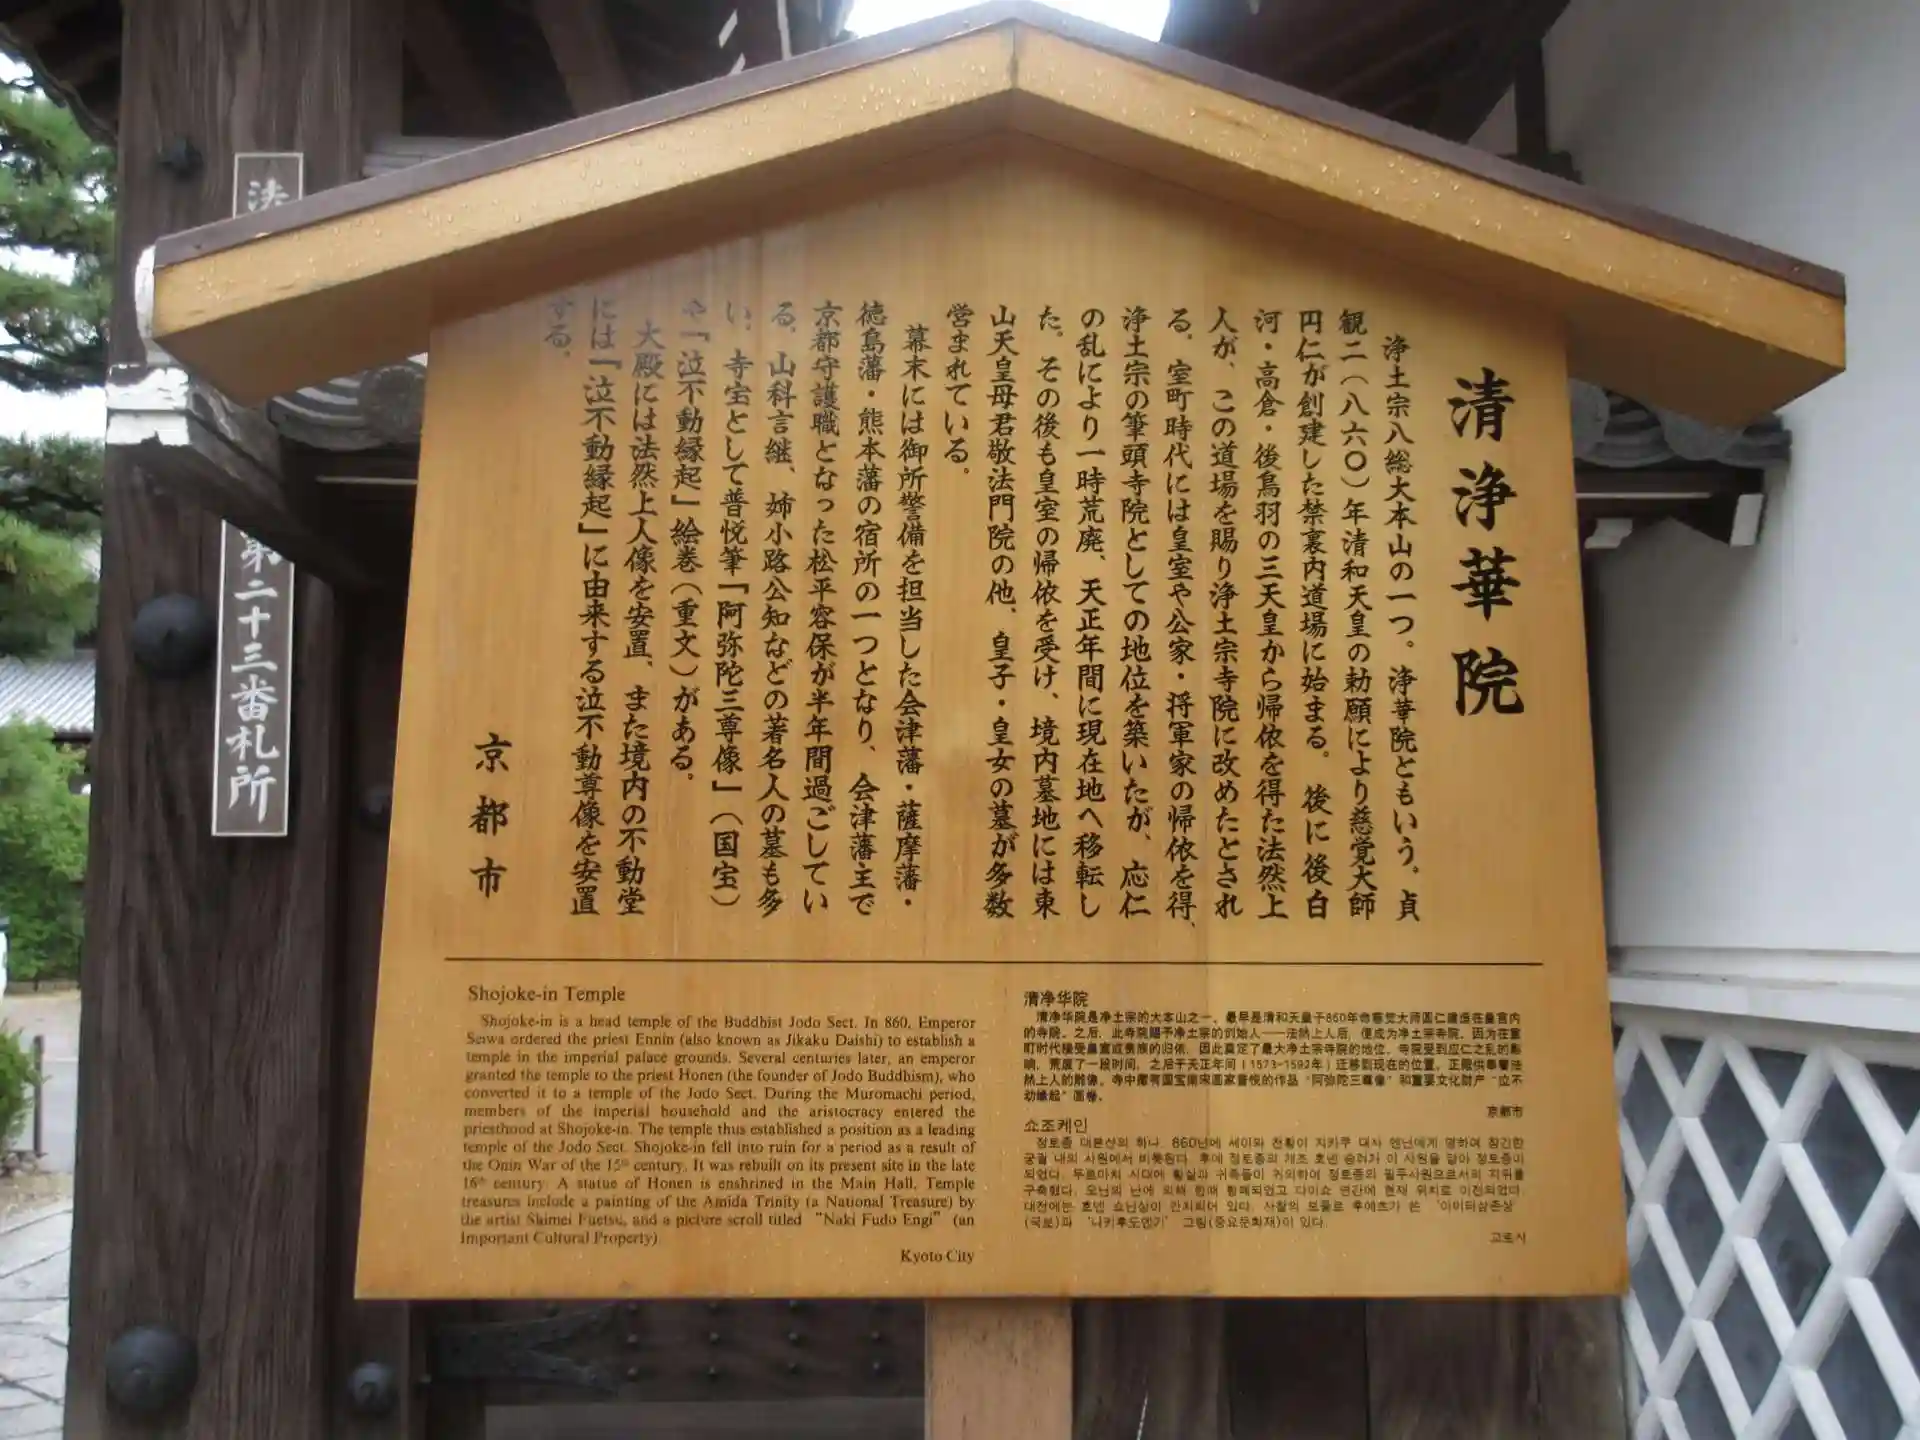 清浄華院
浄土宗八総大本山の一つ。浄華院ともいう。貞
観二（八六〇）年清和天皇の勅願により慈覚大師
円仁が創建した禁裏内道場に始まる。後に後白
河・高倉・後鳥羽の三天皇から帰依を得た法然上
人が、この道場を賜り浄土宗寺院に改めたとされ
る。室町時代には皇室や公家・将軍家の帰依を得、
浄土宗の筆頭寺院としての地位を築いたが、応仁
の乱により一時荒廃、天正年間に現在地へ移転し
た。その後も皇室の帰依を受け、境内墓地には東
山天皇母君敬法門院の他、皇子・皇女の墓が多数
営まれている。
幕末には御所警備を担当した会津藩・薩摩藩・
徳島藩・熊本藩の宿所の一つとなり、会津藩主で
京都守護職となった松平容保が半年間過ごしてい
る。山科言継、姉小路公知などの著名人の墓も多
い。寺宝として普悦筆「阿弥陀三尊像」（国宝）
や「泣不動縁起」絵巻（重文）がある。
大殿には法然上人像を安置、また境内の不動堂
には「泣不動縁起」に由来する泣不動尊像を安置
する。
京都市
Shojoke-in Temple
Shojoke-in is a head temple of the Buddhist Jodo Sect. In 860, Emperor
Seiwa ordered the priest Ennin (also known as Jikaku Daishi) to establish a
temple in the imperial palace grounds. Several centuries later, an emperor
granted the temple to the priest Honen (the founder of Jodo Buddhism), who
converted it to a temple of the Jodo Sect. During the Muromachi period,
members of the imperial household and the aristocracy entered the
priesthood at Shojoke-in. The temple thus established a position as a leading
temple of the Jodo Sect. Shojoke-in fell into ruin for a period as a result of
the Onin War of the 15th century. It was rebuilt on its present site in the late
16th century. A statue of Honen is enshrined in the Main Hall. Temple
treasures include a painting of the Amida Trinity (a National Treasure) by
the artist Shimei Fuetsu, and a picture scroll titled “Naki Fudo Engi” (an
Important Cultural Property).
Kyoto City
清净华院
清净华院是净土宗的大本山之一，最早是清和天皇于860年命慈觉大师圆仁建造在皇宫内
的寺院。之后，此寺院赐予净土宗的创始人——法然上人后，便成为净土宗寺院。因为在室
町时代接受皇室或贵族的归依，因此奠定了最大净土宗寺院的地位。寺院受到应仁之乱的影
响，荒废了一段时间，之后于天正年间（1573-1592年）迁移到现在的位置。正殿供奉着法
然上人的雕像。寺中藏有国宝南宋画家普悦的作品“阿弥陀三尊像”和重要文化财产“泣不
动缘起”画卷。
京都市
쇼조케인
정토종 대본산의 하나. 860년에 세이와 천황이 지카쿠 대사 엔닌에게 명하여 창건한
궁궐 내의 사원에서 비롯된다. 후에 정토종의 개조 호넨 승려가 이 사원을 맡아 정토종이
되었다. 무로마치 시대에 황실과 귀족들이 귀의하여 정토종의 필두사원으로서의 지위를
구축했다. 오닌의 난에 의해 한때 황폐되었고 다이쇼 연간에 현재 위치로 이전되었다.
대전에는 호넨 쇼닌상이 안치되어 있다. 사찰의 보물로 후에츠가 쓴 ‘아미타삼존상’
(국보)과 ‘나키후도엔기’ 그림(중요문화재)이 있다.
교토시
第二十三番札所